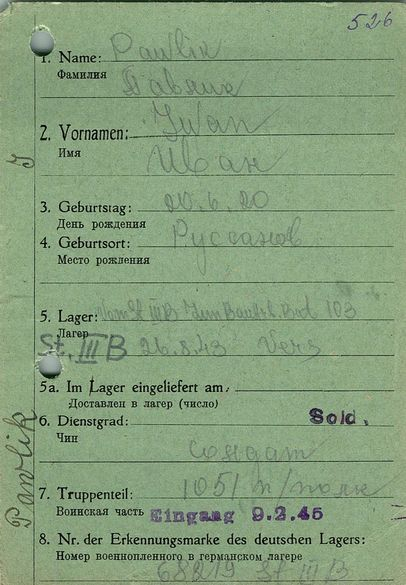 526
1. Name: Pawlik
Фамилия
Павлик
2. Vornamen: Iwan
Имя
Иван
3. Geburtstag: 20.6.20
День рождения
4. Geburtsort: Руссанов
Место рождения
5. Lager: Vom St III B Zum Bau 103
Лагер
St. III B 26.8.43 Vers
5a. Im Lager eingeliefert am
Доставлен в лагер (число)
6. Dienstgrad: Sold.
Чин
солдат
7. Truppenteil: 1051 п/полк
Воинская часть Eingang 9.2.45
8. Nr. der Erkennungsmarke des deutschen Lagers:
Номер военнопленного в германском лагере
68219 St III B
Pawlik I